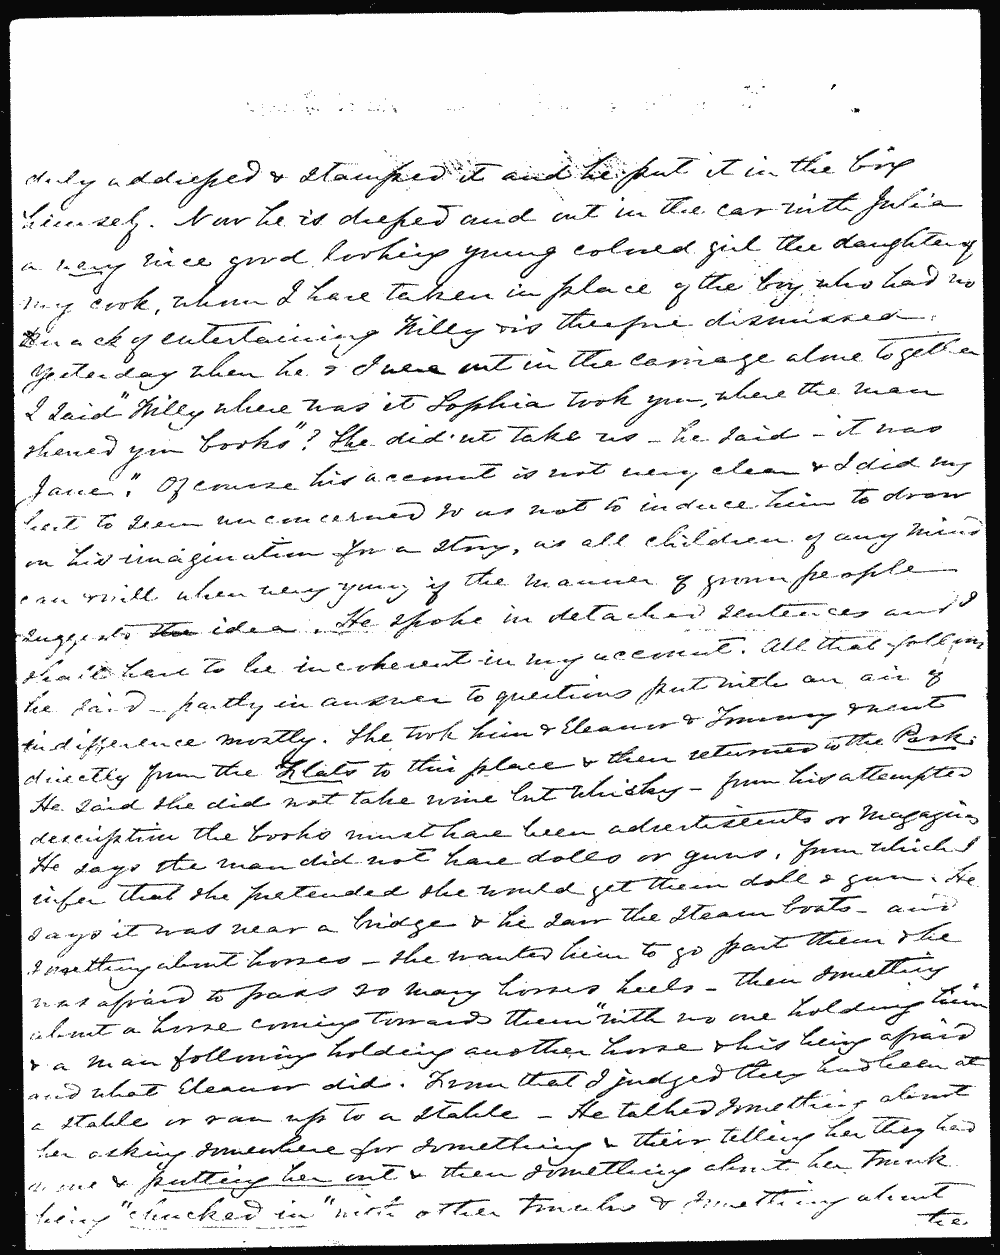 duly addressed & stamped it and he put it in the box
himself. Now he is dressed and out in the car with Julia
a very nice good looking young colored girl the daughter of
my cook, whom I have taken in place of the boy who had no
knack of entertaining Willy & is therefore dismissed.
Yesterday when he & I were out in the carriage alone together
I said "Willy where was it Sophia took you, where the man
showed you books"? She did'nt take us - he said - it was
Jane." Of course his account is not very clear & I did my
best to seem unconcerned so as not to induce him to draw
on his imagination for a story, as all children of any mind
can & will when very young if the manner of grown people
suggests the idea. He spoke in detached sentences and I
shall have to be incoherent in my account. All that follows
he said - partly in answer to questions put with an air of
indifference mostly. She took him & Eleanor & Tommy & went
directly from the Flats to this place & then returned to the Park.
He said she did not take wine but whisky - from his attempted
description the books must have been advertisements or magazines
He says the man did not have dolls or guns, from which I
infer that she pretended she would get them doll & gun. He
says it was near a bridge & he saw the steam boats - and
something about horses - she wanted him to go past them & he
was afraid to pass so many horses heels - then something
about a horse coming towards them "with no one holding him
& a man following holding another horse & his being afraid
and what Eleanor did. From that I judged they had been at
a stable or ran up to a stable - He talked something about
her asking somewhere for something & their telling her they had
none & putting her out & then something about her trunk
being "chucked in" with other trunks & something about
the